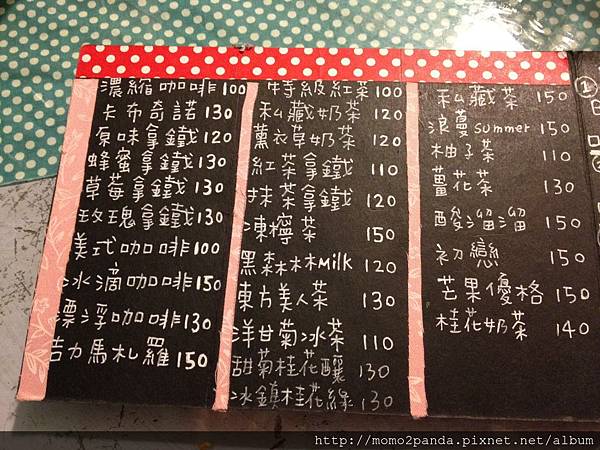 濃縮咖啡100
卡布奇諾130
原味拿鐵120
蜂蜜拿鐵130
草莓拿鐵130
玫瑰拿鐵130
美式咖啡100
冰滴咖啡150
漂浮咖啡130
吉力馬札羅150
特級紅茶100
私藏奶茶120
薰衣草奶茶120
紅茶拿鐵110
抹茶拿鐵120
凍檸茶150
黑森林Milk 120
東方美人茶130
洋甘菊冰茶110
甜菊桂花釀130
冰鎮桂花綠130
私藏茶150
浪蔓summer 150
柚子茶110
薑花茶130
酸溜溜150
初戀150
芒果優格150
桂花奶茶140
①
http://momo2panda.pixnet.net/album